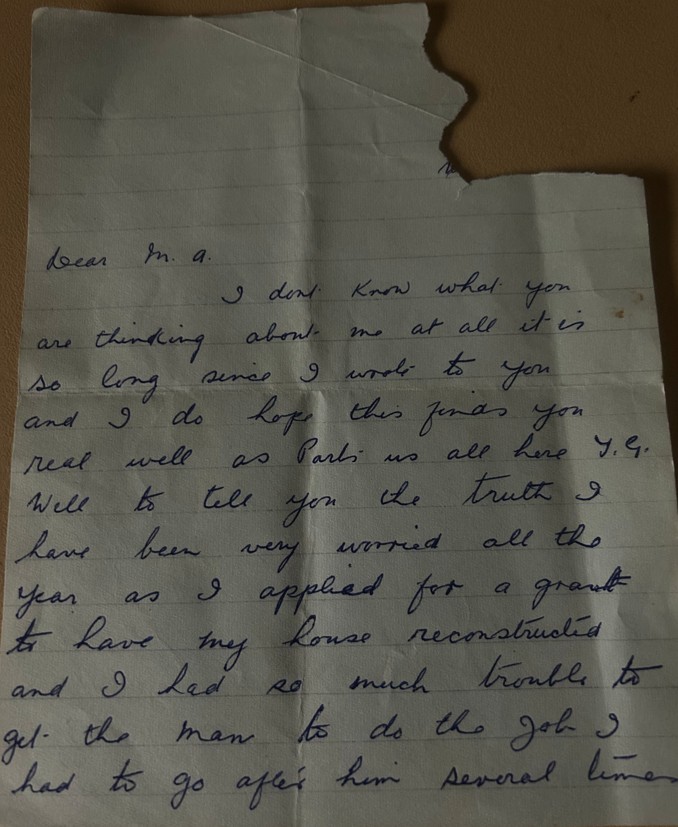 Dear M. A.
I dont know what you
are thinking about me at all it is
so long since I wrote to you
and I do hope this finds you
real well as us all here T.G.
Well to tell you the truth I
have been very worried all the
year as I applied for a grant
to have my house reconstructed
and I had so much trouble to
get the man to do the job I
had to go after him several times